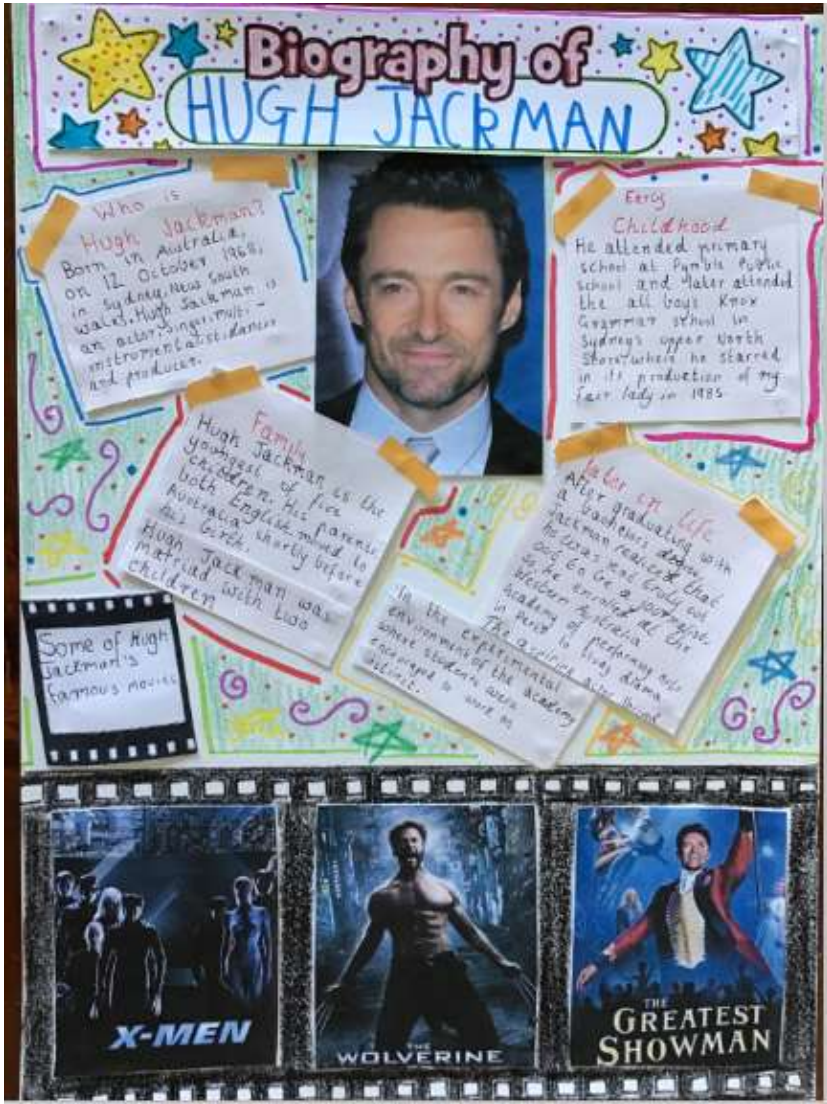 Biography of
HUGH JACKMAN
Who is
Hugh Jackman?
Born in Australia,
on 12 October 1968,
in Sydney, New South
Wales. Hugh Jackman is
an actor, singer, multi-
instrumentalist, dancer
and producer.
Early
Childhood
He attended primary
school at Pymble Public
school and later attended
the all boys Knox
Grammar school in
Sydney's upper North
Shore where he starred
in its production of my
fair lady in 1985
Family
Hugh Jackman is the
youngest of five
children. His parents
both English, moved to
Australia shortly before
his birth.
Hugh Jackman was
matriad with two
children
later in life
After graduating with
a bachelors degree,
Jackman realized that
he was not truly cut
out to be a journalist.
So he enrolled at the
Western Australia
Academy of performing arts
in Perth to study drama
The actor found
In the experimental
environment of the academy,
where students were
encouraged to work on
instinct.
Some of Hugh
Jackman's
famous movies
X-MEN
THE
WOLVERINE
THE
GREATEST
SHOWMAN